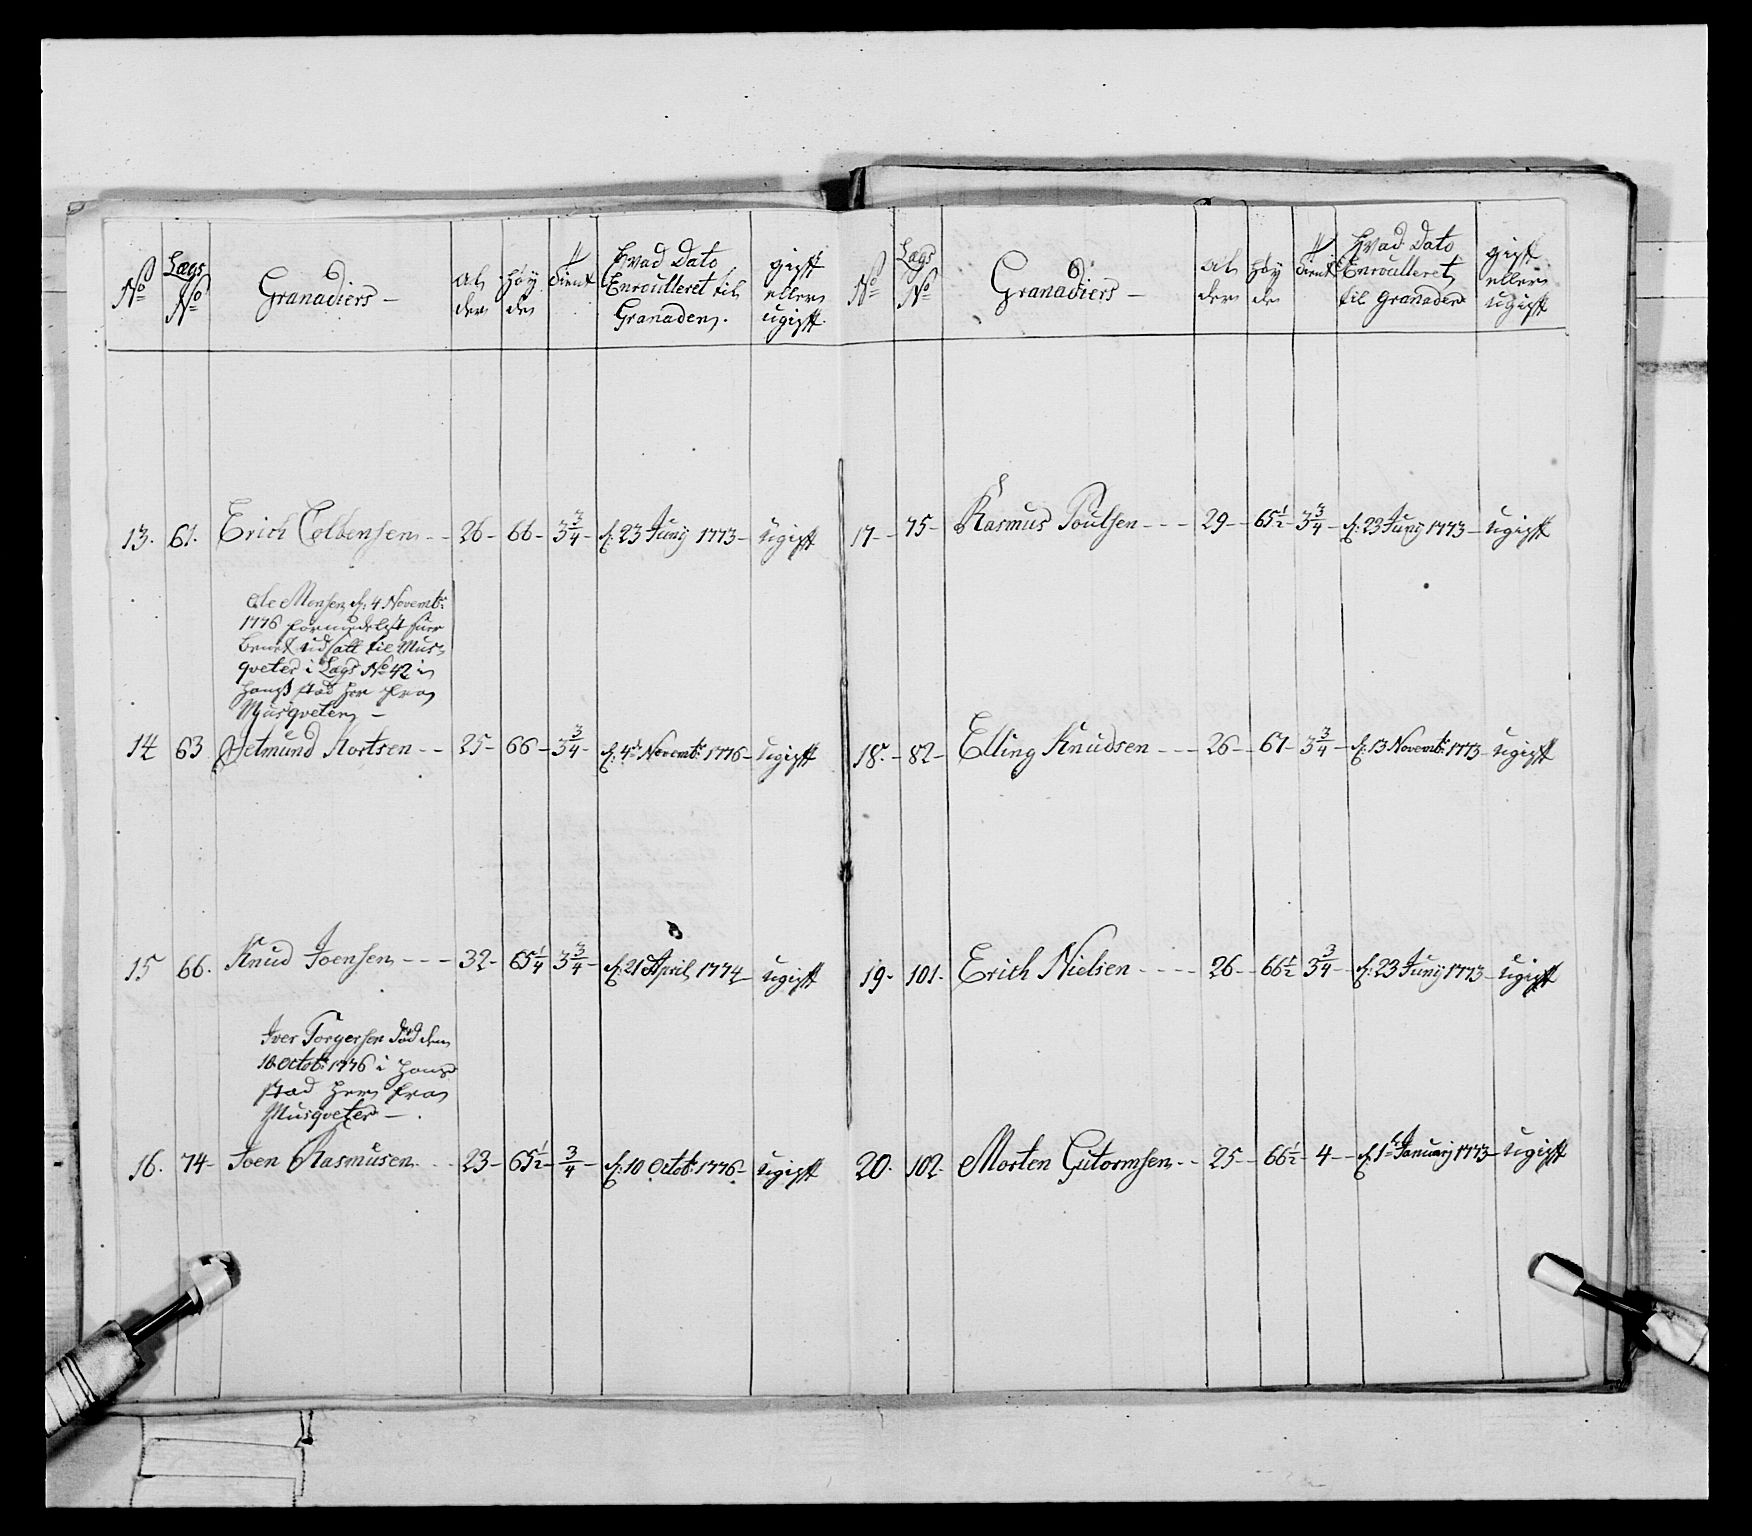 No
Lægs No
Granadiers –
Al der
Høy de
Tient
Hvad Dato Enroulleret til Granader.
gift eller ugift
13. 61. Erich Colbensen - - 26 - 66 - 3 3/4 - d. 23 Junij 1773 - Ugift
Ole Monsen d. 4 Novembr.
1776 formedelst
udsatt til Mus-
qveter i Lægs No 42 i
hans stad her fra
Musqveter –
14 63 Jetmund Kortsen - - 25 - 66 - 3 3/4 - d. 4de Novembr. 1776 - Ugift
15 66. Knud Joensen - - - 32 - 65 1/4 3 3/4 - d. 21 April 1774 Ugift
Iver Torgersen død den
10 Octobr. 1776 i hans
stad her fra
Musqveter – .
16. 74 - Joen Rasmusen - - 23 - 65 1/2 - 3/4 - d. 10 Octobr. 1776 - Ugift
No
Lægs No
Granadiers –
Al der
Høy de
Tient
Hvad Dato Enroulleret til Granader
gift eller ugift
17 - 75 - Rasmus Poulsen - - - 29 - 65 1/2 - 3 3/4 - d. 23 Junij 1773 - Ugift
18. - 82 - Elling Knudsen - - - 26 - 67 - 3 3/4 - d. 13 Novembr. 1773 - Ugift
19 - 101. Erich Nielsen - - - - 26 - 66 1/2 3 3/4 - d. 23 Junij 1773 - Ugift
20. 102. Morten Gutormsen - - 25 - 66 1/2 - 4 - d. 1te Januarij 1773 - Ugift